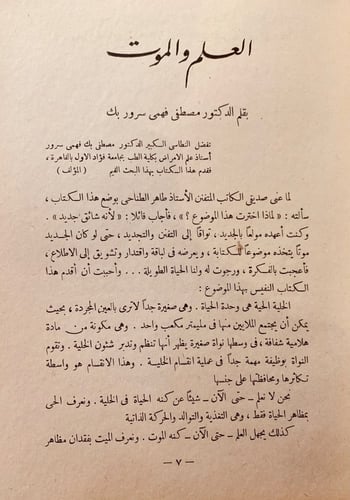 العلم والموت
بقلم الدكتور مصطفى فهمى سرور بك
تفضل النطاسى الكبير الدكتور مصطفى بك فهمى سرور
أستاذ علم الامراض بكلية الطب بجامعة فؤاد الاول بالقاهرة ،
فقدم هذا الكتاب بهذا البحث القيم ( المؤلف )
لما عنى صديقى الكاتب المتفنن الأستاذ طاهر الطناحى بوضع هذا الكتاب ،
سألته : « لماذا اخترت هذا الموضوع ؟ » ، فأجاب قائلا : « لأنه شائق جديد » .
وكنت أعهده مولعاً بالجديد ، تواقاً إلى التفنن والتجديد ، حتى لو كان الجديد
موتاً يتخذه موضوعاً للكتابة ، ويعرضه فى لباقة واقتدار وتشويق إلى الاطلاع ،
فأعجبت بالفكرة ، ورجوت له ولنا الحياة الطويلة ... وأحببت أن أقدم هذا
الكتاب النفيس بهذا الموضوع :
الخلية الحية هى وحدة الحياة . وهى صغيرة جداً لا ترى بالعين المجردة ، بحيث
يمكن أن يجتمع الملايين منها فى مليمتر مكعب واحد . وهى مكونة من مادة
هلامية شفافة ، فى وسطها نواة صغيرة يظهر أنها تنظم وتدبر شئون الخلية . وتقوم
النواة بوظيفة مهمة جداً فى عملية انقسام الخلية . وهذا الانقسام هو واسطة
تكاثرها ومحافظتها على جنسها
نحن لا نعلم – حتى الآن – شيئاً عن كنه الحياة فى الخلية . ونعرف الحى
بمظاهر الحياة فقط ، وهى التغذية والتوالد والحركة الذاتية
كذلك يجهل العلم – حتى الآن – كنه الموت . ونعرف الميت بفقدان مظاهر
— ٧ —